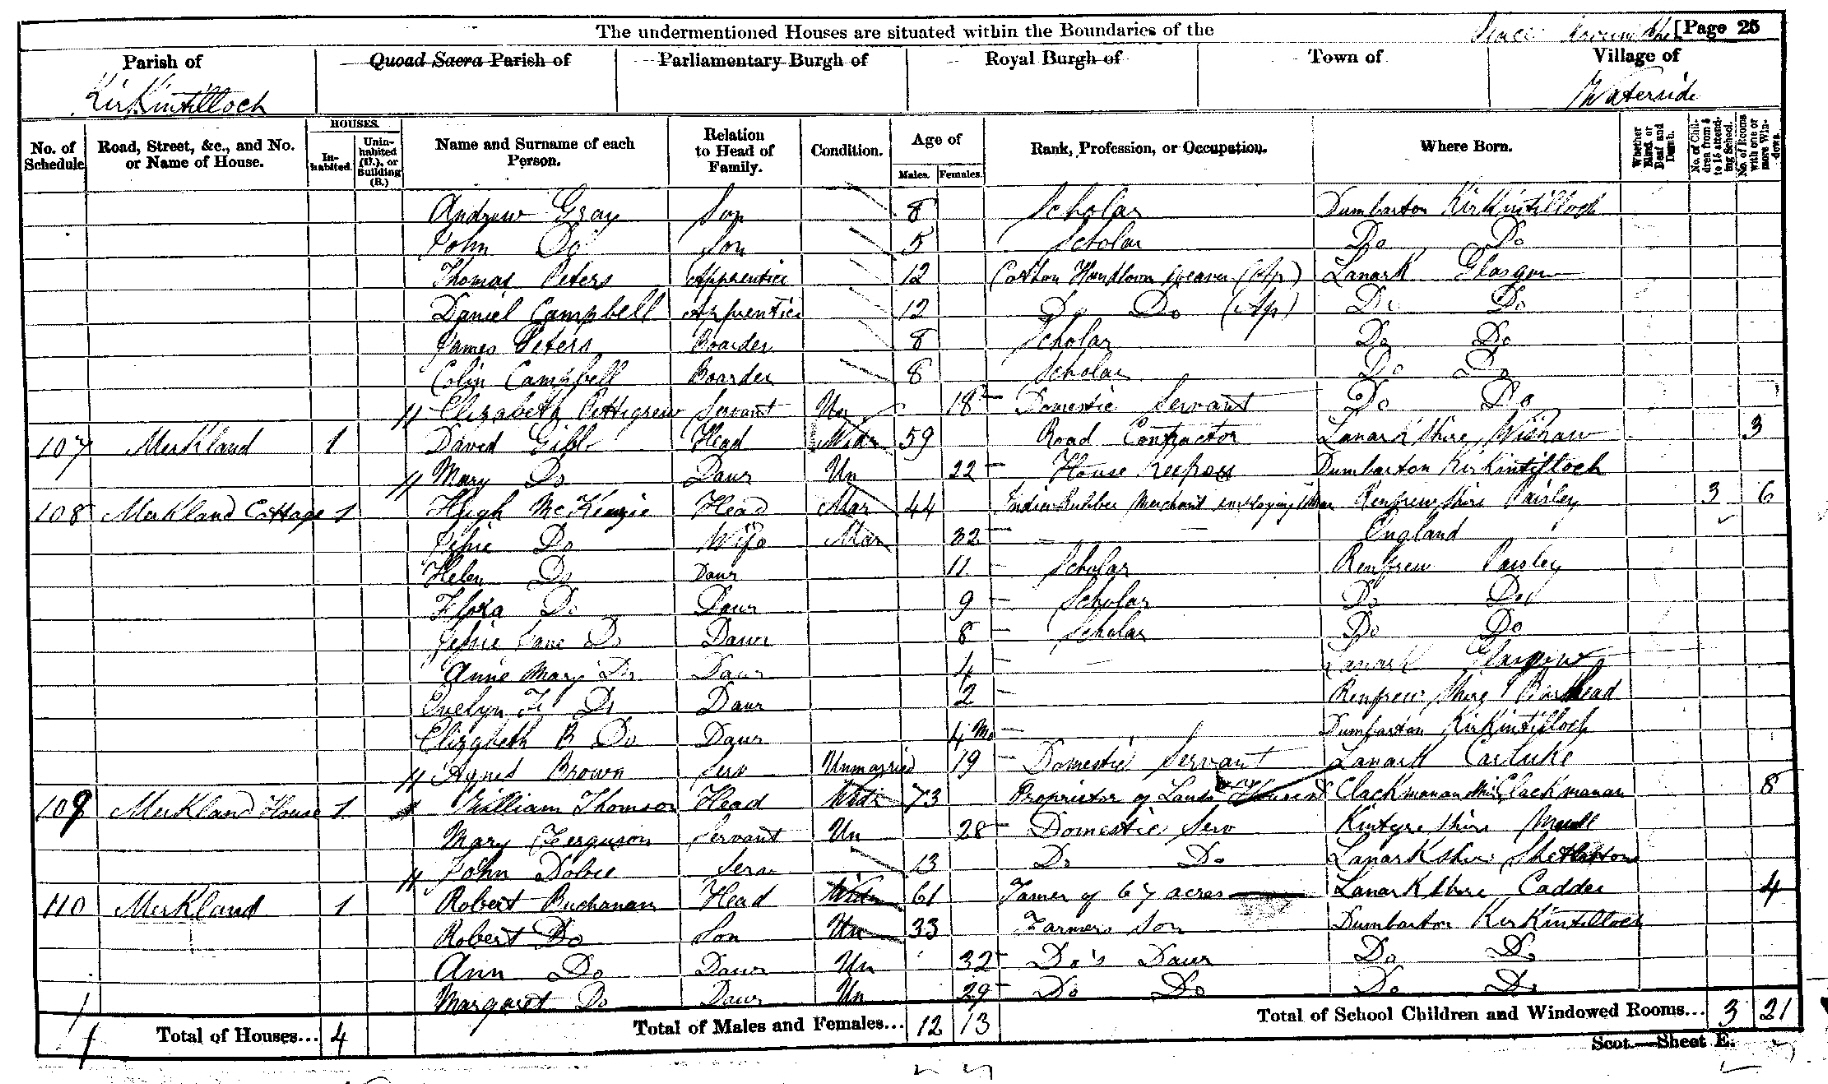 The undermentioned Houses are situated within the Boundaries of the [Page 25
Parish of Quoad Sacra Parish of Parliamentary Burgh of Royal Burgh of Town of Village of
Kirkintilloch Waterside
No. of Schedule. Road, Street, &c., and No. or Name of House. HOUSES. Inhabited. Uninhabited (U.), or Building (B.) Name and Surname of each Person. Relation to Head of Family. Condition. Age of Males. Females. Rank, Profession, or Occupation. Where Born. Whether Blind, or Deaf and Dumb. No. of Children from 5 to 15 attending School. No. of Rooms with one or more Windows.
Andrew Gray Son 8 Scholar Dumbarton Kirkintilloch
John Do Son 5 Scholar Do Do
Thomas Peters Apprentice 12 Cotton Handloom Weaver (Ap) Lanark Glasgow
Daniel Campbell Apprentice 12 Do Do (Ap) Do Do
James Peters Boarder 8 Scholar Do Do
Colin Campbell Boarder 8 Scholar Do Do
Elizabeth Pettigrew Servant Un 18 Domestic Servant Do Do
107 Merkland 1 David Gibb Head 59 Road Contractor Lanarkshire Wishaw 3
Mary Do Daur Un 22 House Keeper Dumbarton Kirkintilloch
108 Merkland Cottage 1 Hugh McKenzie Head Mar 44 Indian Rubber Merchant employing Renfrewshire Paisley 3 6
Do Wife Mar 32 England
Helen Do Daur 11 Scholar Renfrew Paisley
Flora Do Daur 9 Scholar Do Do
Jessie Jane Do Daur 8 Scholar Do Do
Anne Mary Do Daur 4 Lanark Glasgow
Evelyn F Do Daur 2 Renfrew Shire Barrhead
Elizabeth B Do Daur 4 Mo Dumbarton Kirkintilloch
Agnes Brown Serv Unmarried 19 Domestic Servant Lanark Carluke
109 Merkland House 1 William Thomson Head Widr 73 Proprietor of Lands Clackmananshire Clackmanan 8
Mary Ferguson Servant Un 28 Domestic Serv Kintyre Shire Mull
John Dobie Serv 13 Do Do Lanarkshire Shettleston
110 Merkland 1 Robert Buchanan Head Widr 61 Farmer of 67 acres Lanarkshire Cadder 4
Robert Do Son Un 33 Farmers Son Dumbarton Kirkintilloch
Ann Do Daur Un 32 Do's Daur Do Do
Margaret Do Daur Un 29 Do Do Do Do
Total of Houses... 4 Total of Males and Females... 12 13 Total of School Children and Windowed Rooms... 3 21
Scot.—Sheet E.